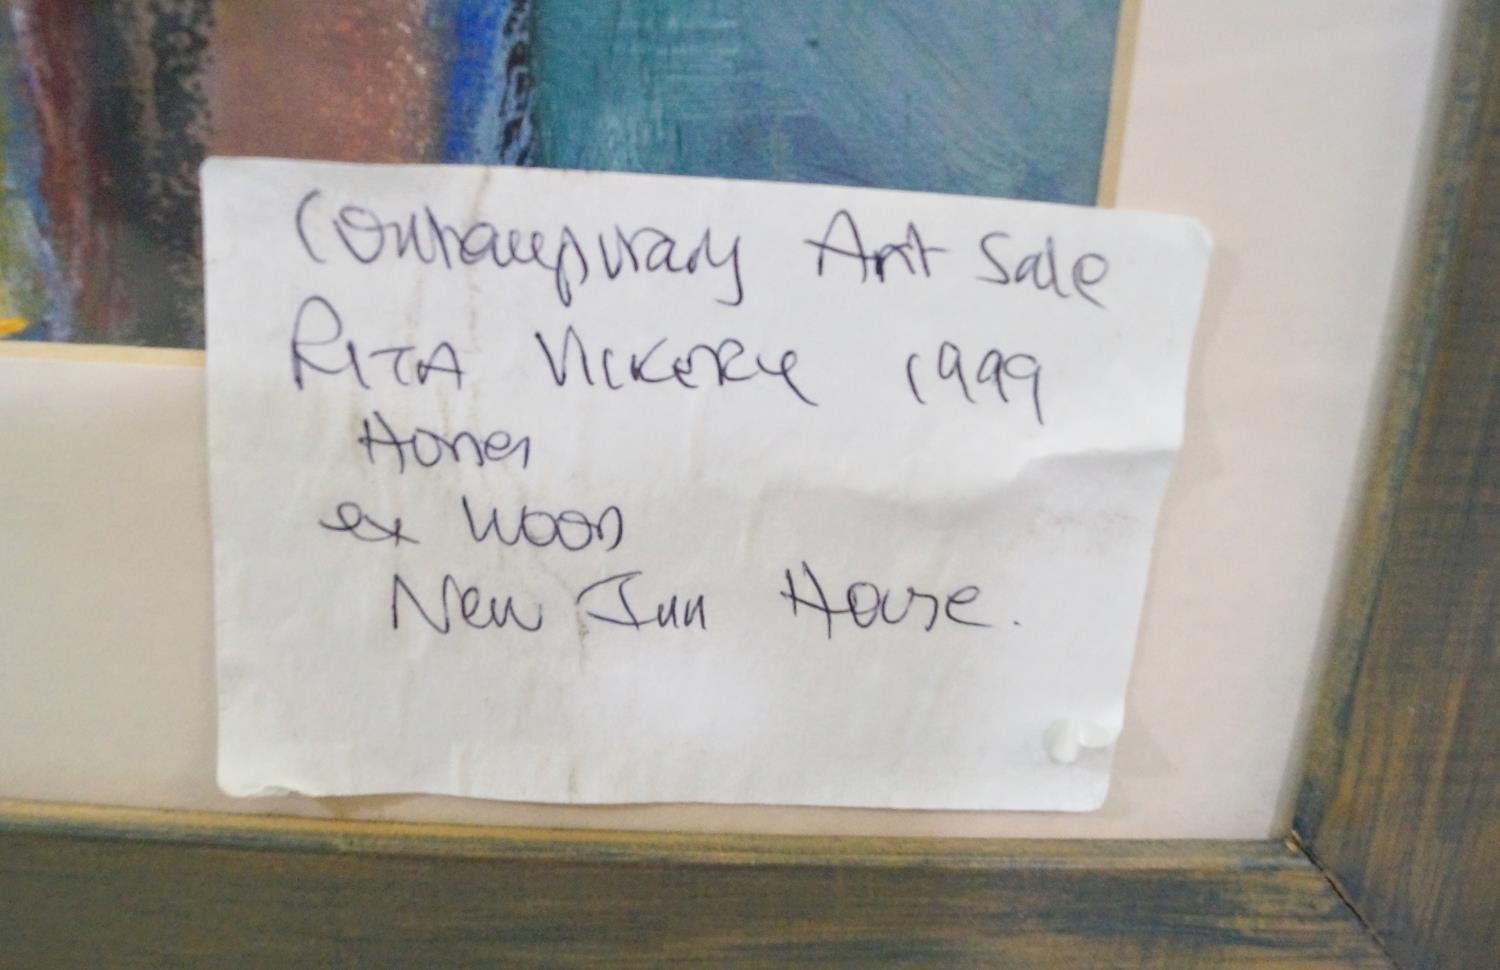 Contemporary Art Sale
RITA VICKERY 1999
Homer
ex Wood
New Inn House.